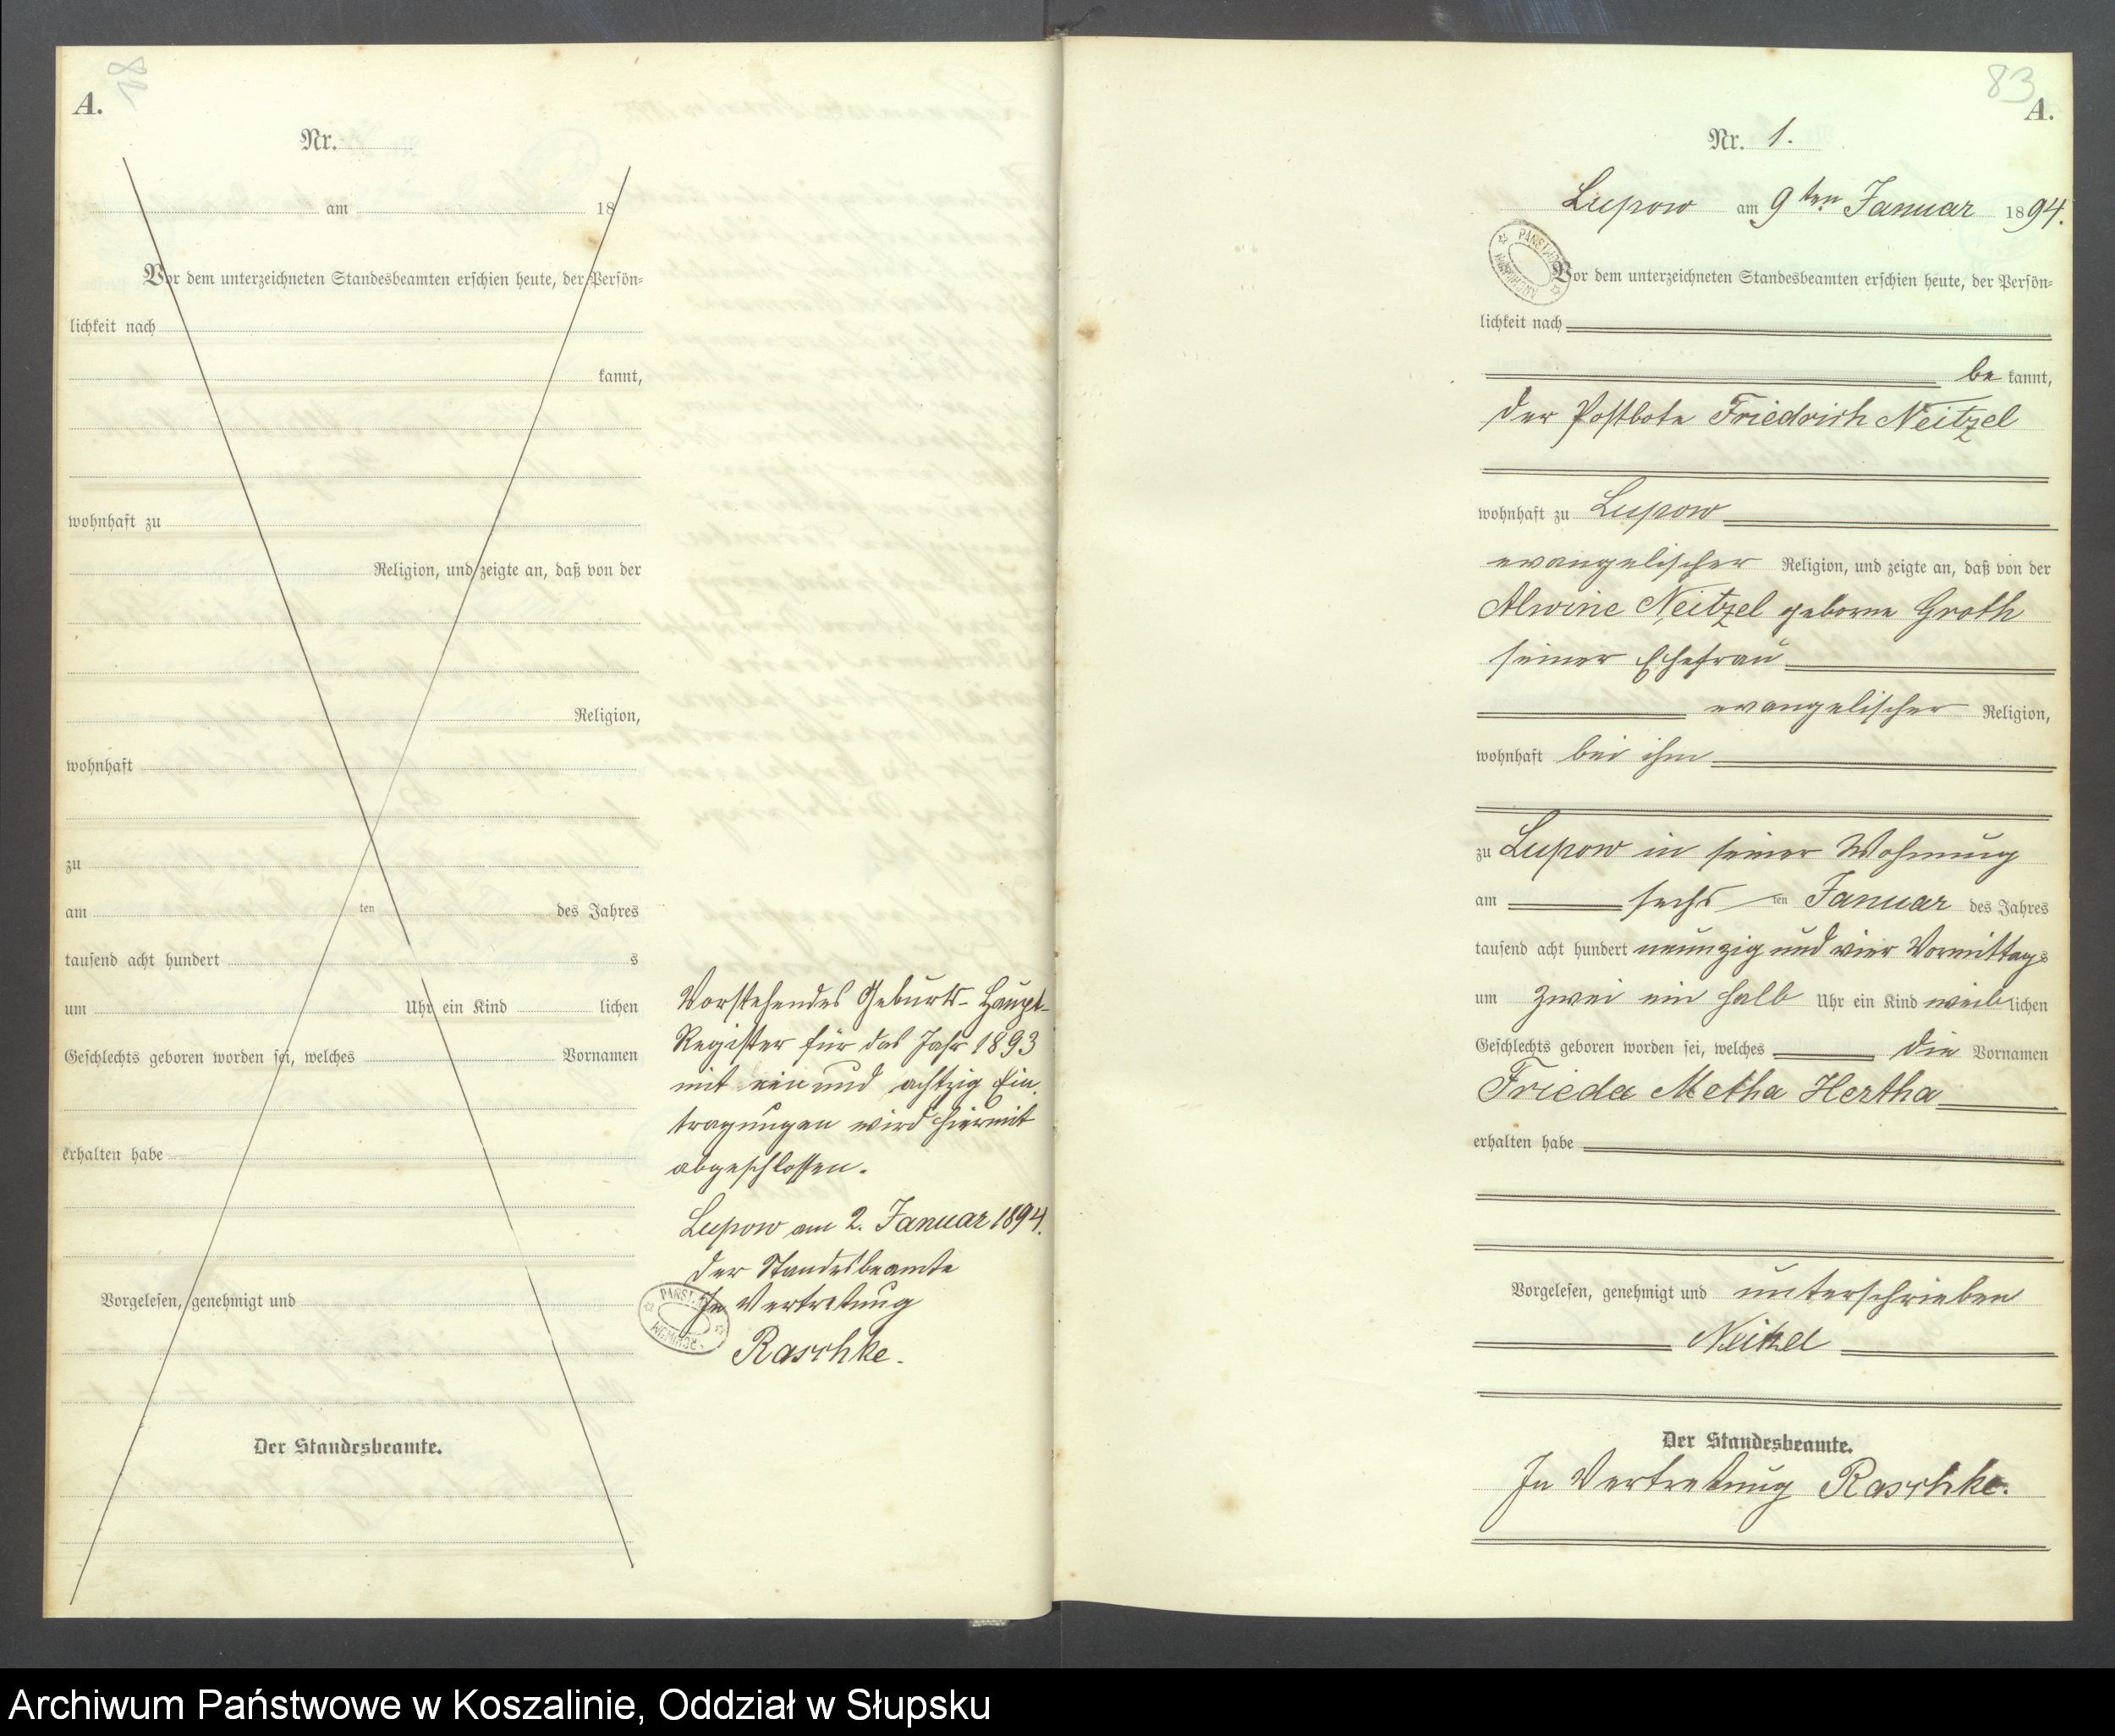 A.
Nr.
am 18
Vor dem unterzeichneten Standesbeamten erschien heute, der Persön=
lichkeit nach
kannt,
wohnhaft zu
Religion, und zeigte an, daß von der
Religion,
wohnhaft
zu
am ten des Jahres
tausend acht hundert s
um Uhr ein Kind lichen
Geschlechts geboren worden sei, welches Vornamen
erhalten habe
Vorgelesen, genehmigt und
Der Standesbeamte.
Vorstehendes Geburts-Haupt-
Register für das Jahr 1893
mit ein und achtzig Ein
tragungen wird hiermit
abgeschlossen.
Lupow am 2. Januar 1894.
Der Standesbeamte
In Vertretung
Raschke.
83
A.
Nr. 1.
Lupow am 9ten Januar 1894.
Vor dem unterzeichneten Standesbeamten erschien heute, der Persön=
lichkeit nach
be kannt,
der Postbote Friedrich Neitzel
wohnhaft zu Lupow
evangelischer Religion, und zeigte an, daß von der
Alwine Neitzel geborne Groth
seiner Ehefrau
evangelischer Religion,
wohnhaft bei ihm
zu Lupow in seiner Wohnung
am sechs ten Januar des Jahres
tausend acht hundert neunzig und vier Vormittags
um zwei ein halb Uhr ein Kind weiblichen
Geschlechts geboren worden sei, welches die Vornamen
Frieda Metha Hertha
erhalten habe
Vorgelesen, genehmigt und unterschrieben
Neitzel
Der Standesbeamte.
In Vertretung Raschke.
Archiwum Państwowe w Koszalinie, Oddział w Słupsku